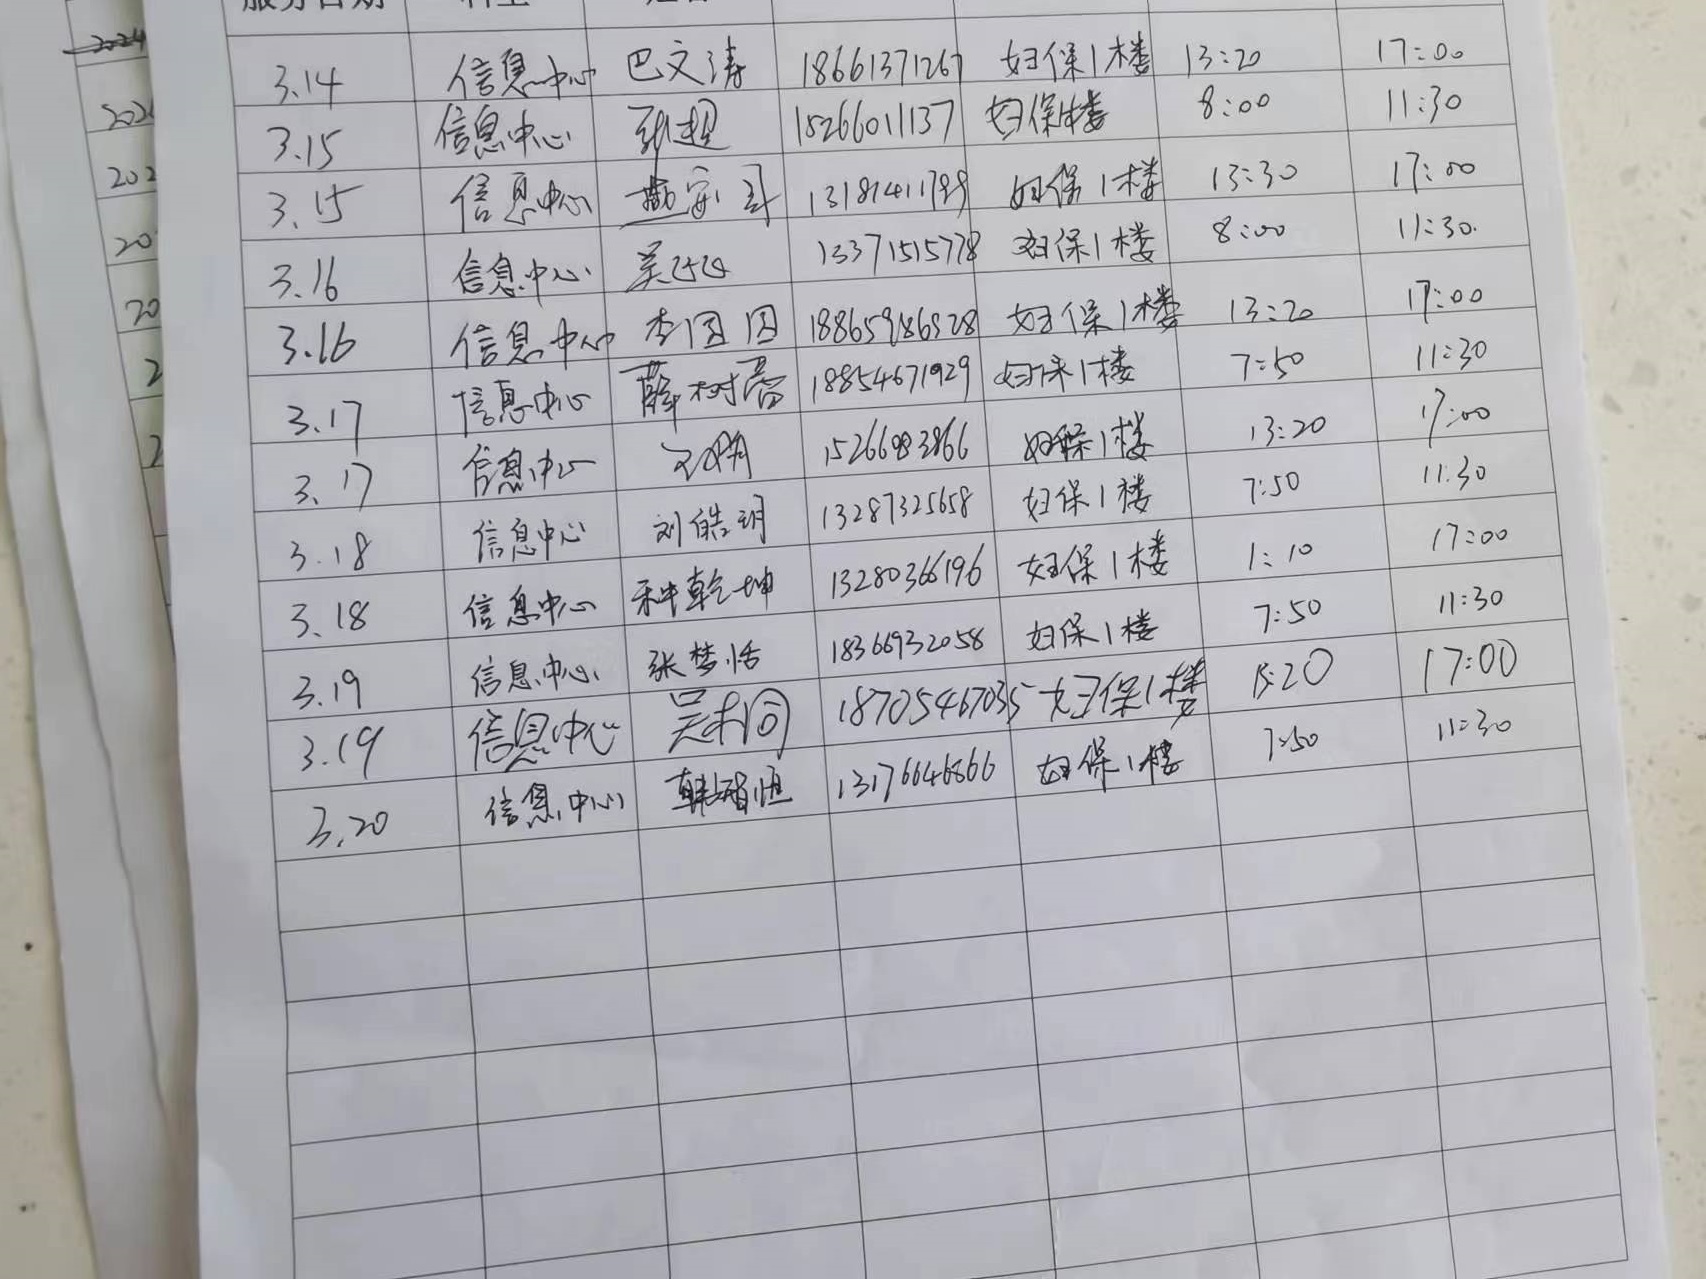 服务日期 科室 姓名
3.14 信息中心 巴文涛 18661371267 妇保1楼 13:20 17:00
3.15 信息中心 张超 15266011137 妇保1楼 8:00 11:30
3.15 信息中心 13181411799 妇保1楼 13:30 17:00
3.16 信息中心 吴 13371515778 妇保1楼 8:00 11:30
3.16 信息中心 李囡囡 18865986928 妇保1楼 13:20 17:00
3.17 信息中心 薛树蕾 18854671929 妇保1楼 7:50 11:30
3.17 信息中心 妇保1楼 13:20 17:00
3.18 信息中心 刘皓玥 13287325658 妇保1楼 7:50 11:30
3.18 信息中心 种乾坤 13280366196 妇保1楼 1:10 17:00
3.19 信息中心 张梦恬 18366932058 妇保1楼 7:50 11:30
3.19 信息中心 吴树同 18705467035 妇保1楼 13:20 17:00
3.20 信息中心 韩智恒 13176646866 妇保1楼 7:50 11:30
2024